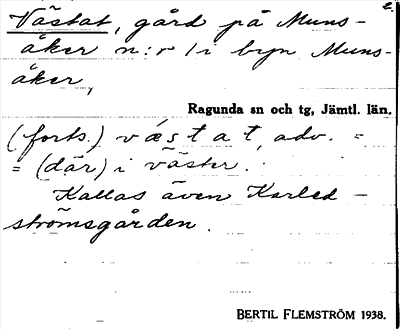 2.
Västat, gård på Muns-
åker n:r 1 i byn Muns-
åker,
Ragunda sn och tg, Jämtl. län.
(forts.) västat, adv. =
= (där) i väster.
Kallas även Karled-
strömsgården.
BERTIL FLEMSTRÖM 1938.